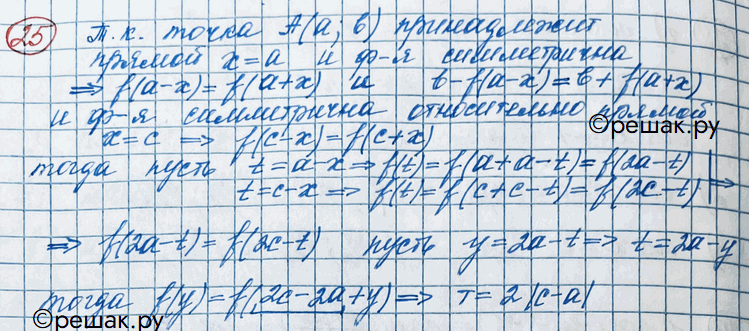 25 Т.к. точка A(a; b) принадлежит
прямой x=a и ф-я симметрична
=> f(a-x)=f(a+x) и b-f(a-x)=b+f(a+x)
и ф-я симметрична относительно прямой
©решак.ру
x=c => f(c-x)=f(c+x)
тогда пусть t=a-x => f(t)=f(a+a-t)=f(2a-t) | =>
t=c-x => f(t)=f(c+c-t)=f(2c-t)
=> f(2a-t)=f(2c-t) пусть y=2a-t => t=2a-y
тогда f(y)=f(2c-2a+y) => T=2|c-a|
©решак.ру